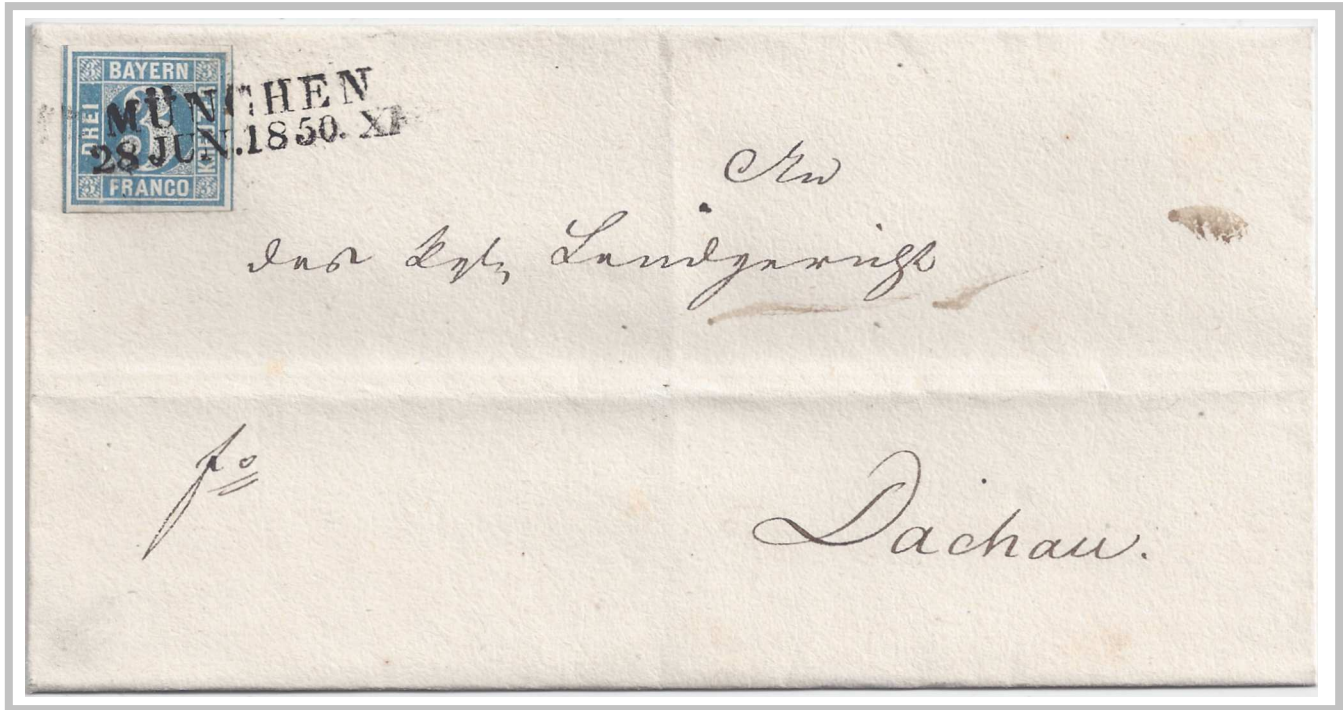 BAYERN
DREI 3 KREUZER
FRANCO
MÜNCHEN
28 JUN.1850. XI
An
das Kgl. Landgericht
fo
Dachau.